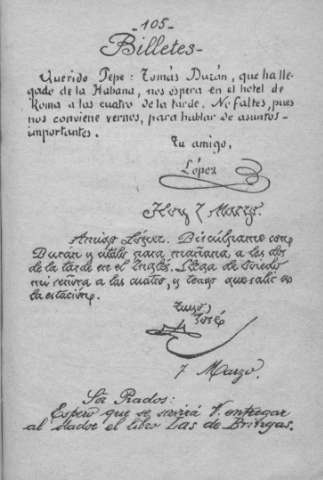 -105-
Billetes-
Querido Pepe: Tomás Durán, que ha lle-
gado de la Habana, nos espera en el hotel de
Roma a las cuatro de la tarde. No faltes, pues
nos conviene vernos, para hablar de asuntos-
importantes.
Tu amigo,
López
Hoy 7 Marzo.
Amigo López. Discúlpame con
Durán y cítalo para mañana, a las dos
de la tarde en el Inglés. Llega de Oviedo
mi señora a las cuatro, y tengo que salir a
la estación.
Tuyo,
José
7 Marzo.
Sr. Prados:
Espero que se servirá V. entregar
al dador el libro Las de Bringas.